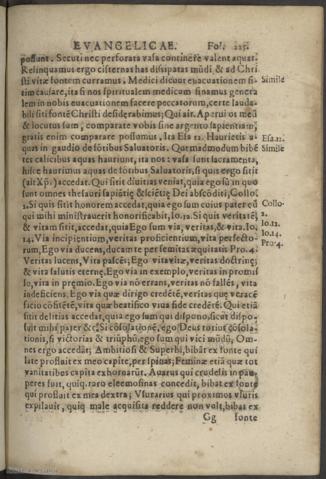 EVANGELICAE. Fol. 225.
possunt. Secuti nec perforata vasa continere valent aquas.
Relinquamus ergo cisternas has dissipatas mūdi, & ad Chri
sti vitæ fontem curramus. Medici dicunt evacuationem si
tim causare, ita si nos spiritualem medicum sinamus genera
lem in nobis evacuationem facere peccatorum, certe lauda-
bili siti fontē Christi desiderabimus; Qui ait. Aperui os meū
& locutus sum, comparate vobis sine argento sapientiam,
gratis enim comparare possumus. Ita Esa 12. Haurietis a-
quas in gaudio de fōtibus Salvatoris. Quemadmodum bibē
tes calicibus aquas hauriunt, ita nos vasis sunt sacramenta,
hisce haurimus aquas de fōtibus Salvatoris, si quis ergo sitit
accedat. Qui sitit divitias veniat, quia ego
sunt omnes thesauri sapiētiæ & sciētiæ Dei absconditi, Collos.
2. Si quis sitit honorem accedat, quia ego sum cuius pater eū
qui mihi ministraverit honorificabit, Io.12. Si quis veritatē
& vitam sitit, accedat, quia Ego sum via, veritas, & vita. Io.
14. Via incipientium, veritas proficientium, vita perfecto-
rum, Ego via ducens, ducam te per semitas æquitatis Pro.4.
Veritas lucens, Vita pascēs; Ego vita vitæ, veritas doctrinę;
& vita salutis eternę. Ego via in exemplo, veritas in promis
so, vita in premio. Ego via nō errans, veritas nō fallēs, vita
indeficiens; Ego via quæ dirigo credētē, veritas quæ
ficio cōfisētē, vita quæ beatifico viva fide credētē. Qui etiā
sitit delitias accedat, quia ego sum qui dispono, sicut dispo-
suit mihi pater &c; Si cōsolationē, ego Deus totius cōsola-
tionis, si victorias & triūphū, ego sum qui vici mūdū, Om-
nes ergo accedāt; Ambitiosi & Superbi, bibāt ex fonte qui
late profluit ex meo capite, per spinas; Feminæ etiā quæ tot
vanitatibus capita exhornārūt. Avarus qui crudelis in pau-
peres fuit, quiq. raro eleemosinas concedit, bibat ex fonte
qui profluit ex mea dextra; Vsurarius qui proximos vltiris
expilauit, quiq male acquisita reddere non vult, bibat ex
Gg fonte
Simile
Esa.12.
Simile
Collo-
2.
Io.12.
Io.14.
Pro.4.